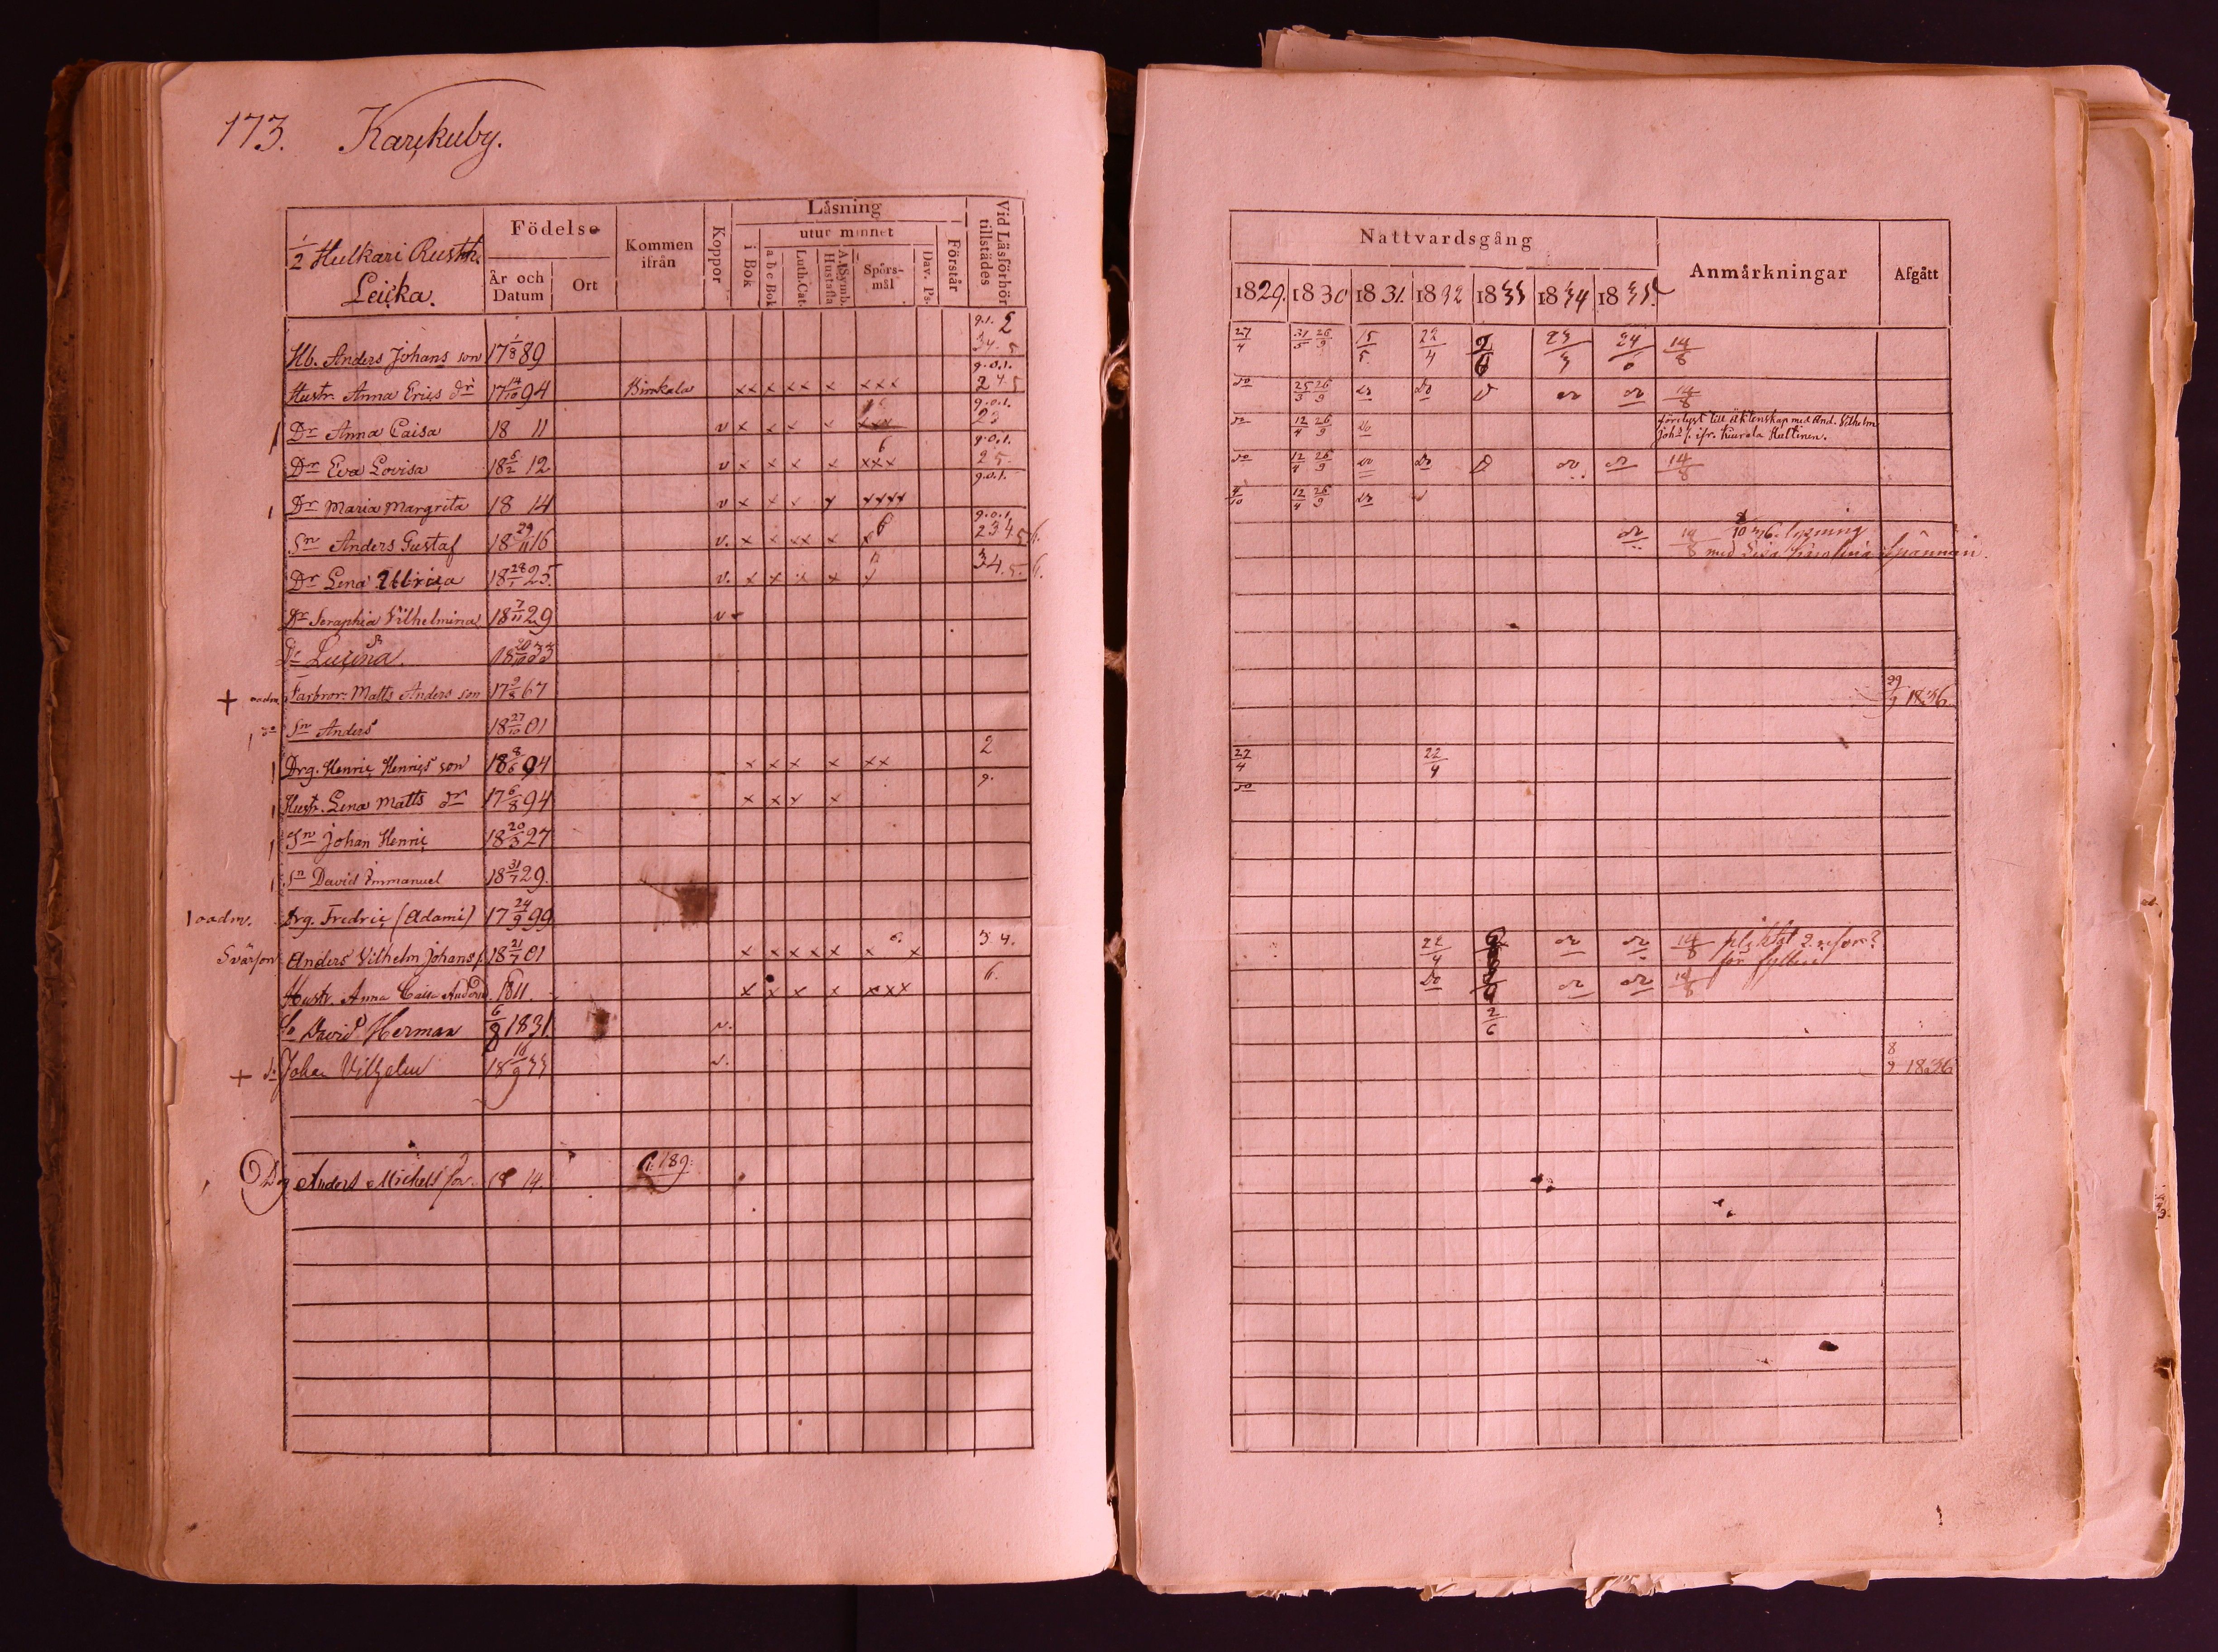 173. Karckuby.
1/2 Hulkari Rusth.
Leicka.
Födelse
År och Datum
Ort
Kommen ifrån
Koppor
Läsning
utur minnet
i Bok
a b c Bok
Luth. Cat.
A.t Symb. Hustafla
Spörs-mål
Dav. Ps.
Förstår
Vid Läsförhör tillstädes
Hb. Anders Johans son 17 1/8 89 9.1. 2 34. 5
Hustr. Anna Erics dr 17 14/10 94 Birckala xx x xx x xxx 9.0.1. 2 4. 5
Dr Anna Caisa 18 11 v x x x x xxx 9.0.1. 23
Dr Eva Lovisa 18 5/2 12 v x x x x xxx 6 9.0.1. 2 5.
Dr Maria Margrita 18 14 v x x x x xxxx 9.0.1.
Sn Anders Gustaf 18 29/11 16 v. x x xx x x 6 9.0.1. 2 3 4. 5 6.
Dr Lena Ulrica 18 28/1 25. v. x x x x x 3.4. 5. 6.
Dr Seraphia Vilhelmina 18 7/11 29 v
Dr Lucina. 18 20/10 33
+ oadm. Farbror Matts Anders son 17 9/8 67
do Sn Anders 18 27/10 01
Drg. Henric Henrics son 18 8/6 94 x x x x xx 2
Hustr. Lena Matts dr 17 6/8 94 x x x x 9.
Sn Johan Henric 18 20/3 27
Sn David Emmanuel 18 31/7 29.
oadm. Drg. Fredric (Adami) 17 24/9 99
Svärson Anders Vilhelm Johans s. 18 21/7 01 x x x x x x 6. x 3 4.
Hustr. Anna Caisa Andersd. 1811. x x x x xxx 6.
So David Herman 6/8 1831. v.
+ do Johan Vilhelm 18 16/9 33 v.
Drg Anders Michels son 18 14. 189.
Nattvardsgång
Anmärkningar
Afgått
1829. 1830 1831. 1832 1833 1834 1835.
27/4 31/5 26/9 15/5. 22/4 2/6 23/3 24/6 14/8
do 25/3 26/9 do do do do 14/8
do 12/4 26/9 do förelyst till äktenskap med And. Vilhelm
Johs s. ifr. Kuurola Hultinen.
do 12/4 26/9 do do do do 14/8
4/10 12/4 26/9 do
do 14/8 10 36. lysning
med Lisa
29/9 1836
27/4 22/4
do
22/4 do do 14/8 plichtat 2
för fylleri
do do do 14/8
2/6
8/9 1836